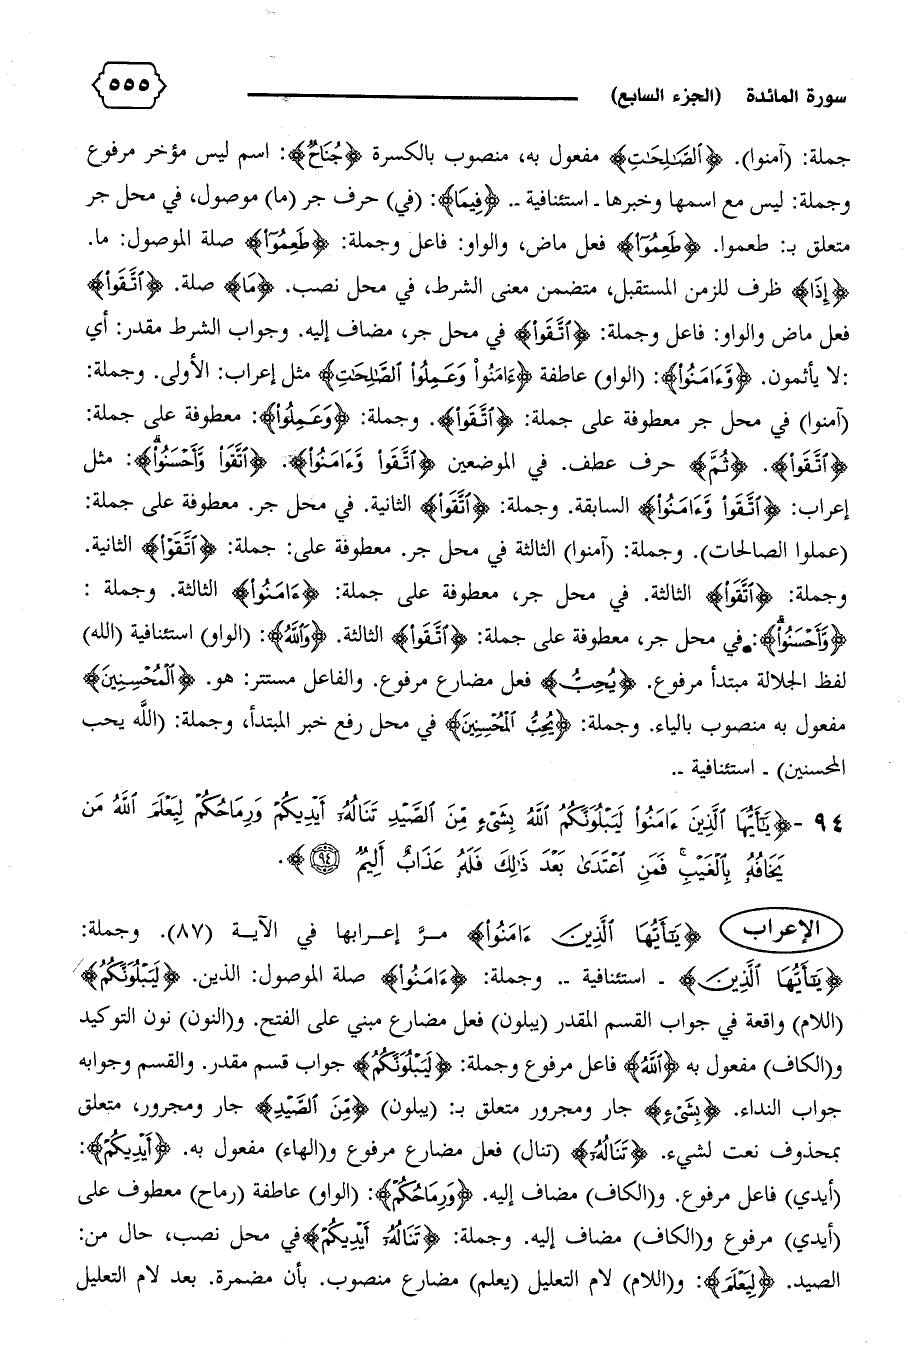 سورة المائدة (الجزء السابع) ٥٥٥
جملة: (آمنوا). ﴿ٱلصَّٰلِحَٰتِ﴾ مفعول به، منصوب بالكسرة ﴿جُنَاحٌ﴾: اسم ليس مؤخر مرفوع
وجملة: ليس مع اسمها وخبرها ـ استئنافية .. ﴿فِيمَا﴾: (في) حرف جر (ما) موصول، في محل جر
متعلق بـ: طعموا. ﴿طَعِمُوٓا۟﴾ فعل ماض، والواو: فاعل وجملة: ﴿طَعِمُوٓا۟﴾ صلة الموصول: ما.
﴿إِذَا﴾ ظرف للزمن المستقبل، متضمن معنى الشرط، في محل نصب. ﴿مَا﴾ صلة. ﴿ٱتَّقَوا۟﴾
فعل ماض والواو: فاعل وجملة: ﴿ٱتَّقَوا۟﴾ في محل جر، مضاف إليه. وجواب الشرط مقدر: أي
:لا يأثمون. ﴿وَّءَامَنُوا۟﴾: (الواو) عاطفة ﴿ءَامَنُوا۟ وَعَمِلُوا۟ ٱلصَّٰلِحَٰتِ﴾ مثل إعراب: الأولى. وجملة:
(آمنوا) في محل جر معطوفة على جملة: ﴿ٱتَّقَوا۟﴾. وجملة: ﴿وَعَمِلُوا۟﴾: معطوفة على جملة:
﴿ٱتَّقَوا۟﴾. ﴿ثُمَّ﴾ حرف عطف. في الموضعين ﴿ٱتَّقَوا۟ وَّءَامَنُوا۟﴾. ﴿ٱتَّقَوا۟ وَّأَحْسَنُوا۟ۗ﴾: مثل
إعراب: ﴿ٱتَّقَوا۟ وَّءَامَنُوا۟﴾ السابقة. وجملة: ﴿ٱتَّقَوا۟﴾ الثانية. في محل جر. معطوفة على جملة:
(عملوا الصالحات). وجملة: (آمنوا) الثالثة في محل جر. معطوفة على: جملة: ﴿ٱتَّقَوا۟﴾ الثانية.
وجملة: ﴿ٱتَّقَوا۟﴾ الثالثة. في محل جر، معطوفة على جملة: ﴿ءَامَنُوا۟﴾ الثالثة. وجملة :
﴿وَّأَحْسَنُوا۟ۗ﴾: في محل جر، معطوفة على جملة: ﴿ٱتَّقَوا۟﴾ الثالثة. ﴿وَٱللَّهُ﴾: (الواو) استئنافية (الله)
لفظ الجلالة مبتدأ مرفوع. ﴿يُحِبُّ﴾ فعل مضارع مرفوع. والفاعل مستتر: هو. ﴿ٱلْمُحْسِنِينَ﴾
مفعول به منصوب بالياء. وجملة: ﴿يُحِبُّ ٱلْمُحْسِنِينَ﴾ في محل رفع خبر المبتدأ، وجملة: (اللَّه يحب
المحسنين) ـ استئنافية ..
٩٤ -﴿يَٰٓأَيُّهَا ٱلَّذِينَ ءَامَنُوا۟ لَيَبْلُوَنَّكُمُ ٱللَّهُ بِشَىْءٍ مِّنَ ٱلصَّيْدِ تَنَالُهُۥٓ أَيْدِيكُمْ وَرِمَاحُكُمْ لِيَعْلَمَ ٱللَّهُ مَن
يَخَافُهُۥ بِٱلْغَيْبِۚ فَمَنِ ٱعْتَدَىٰ بَعْدَ ذَٰلِكَ فَلَهُۥ عَذَابٌ أَلِيمٌ ۝٩٤﴾.
الإعراب ﴿يَٰٓأَيُّهَا ٱلَّذِينَ ءَامَنُوا۟﴾ مرَّ إعرابها في الآية (٨٧). وجملة:
﴿يَٰٓأَيُّهَا ٱلَّذِينَ﴾ ـ استئنافية .. وجملة: ﴿ءَامَنُوا۟﴾ صلة الموصول: الذين. ﴿لَيَبْلُوَنَّكُمُ﴾
(اللام) واقعة في جواب القسم المقدر (يبلون) فعل مضارع مبني على الفتح. و(النون) نون التوكيد
و(الكاف) مفعول به ﴿ٱللَّهُ﴾ فاعل مرفوع وجملة: ﴿لَيَبْلُوَنَّكُمُ﴾ جواب قسم مقدر. والقسم وجوابه
جواب النداء. ﴿بِشَىْءٍ﴾ جار ومجرور متعلق بـ: (يبلون) ﴿مِّنَ ٱلصَّيْدِ﴾ جار ومجرور، متعلق
بمحذوف نعت لشيء. ﴿تَنَالُهُۥٓ﴾ (تنال) فعل مضارع مرفوع و(الهاء) مفعول به. ﴿أَيْدِيكُمْ﴾:
(أيدي) فاعل مرفوع. و(الكاف) مضاف إليه. ﴿وَرِمَاحُكُمْ﴾: (الواو) عاطفة (رماح) معطوف على
(أيدي) مرفوع و(الكاف) مضاف إليه. وجملة: ﴿تَنَالُهُۥٓ أَيْدِيكُمْ﴾في محل نصب، حال من:
الصيد. ﴿لِيَعْلَمَ﴾: و(اللام) لام التعليل (يعلم) مضارع منصوب. بأن مضمرة. بعد لام التعليل